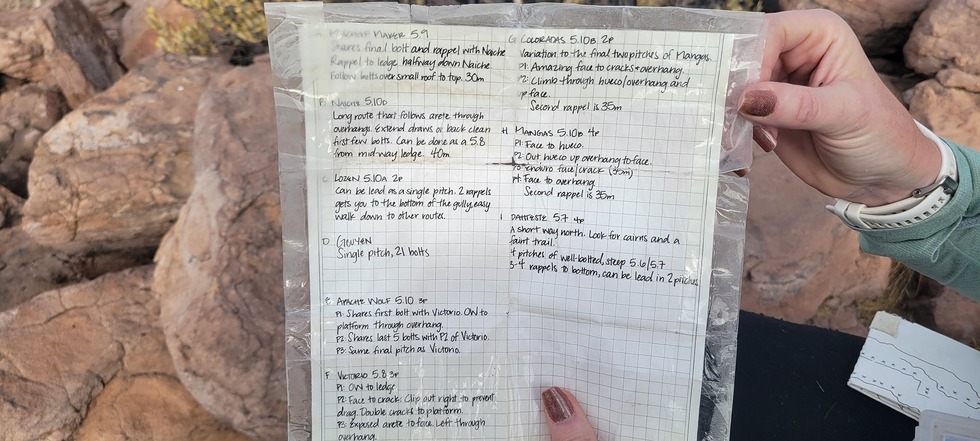 MAKER 5.9
Shares final bolt and rappel with Naiche
Rappel to ledge halfway down Naiche.
Follow bolts over small roof to top. 30m
B. NAICHE 5.10D
Long route that follows arete through
overhangs. Extend draws or back clean
first few bolts. Can be done as a 5.8
from mid-way ledge. 40m
C. LOZEN 5.10A 2P
Can be lead as a single pitch. 2 rappels
gets you to the bottom of the gully, easy
walk down to other routes.
D. GOUYEN
Single pitch, 21 bolts
E. APACHE WOLF 5.10 3P
P1: Shares first bolt with Victorio. OW to
platform through overhang.
P2: Shares last 5 bolts with P2 of Victorio.
P3: Same final pitch as Victorio.
F. VICTORIO 5.8 3P
P1: OW to ledge
P2: Face to crack. Clip out right to prevent
drag. Double cracks to platform.
P3: Exposed arete to face. Left through
overhang.
G. COLORADAS 5.10B. 2P
Variation to the final two pitches of Mangas.
P1: Amazing face to cracks + overhang.
P2: Climb through hueco/overhang and
up face.
Second rappel is 35m
H. MANGAS 5.10B 4P
P1: Face to hueco.
P2: Out hueco up overhang to face.
P3: enduro face/crack (35m)
P4: Face to overhang.
Second rappel is 35m
I. DAHTESTE 5.7 4P
A short way north. Look for cairns and a
faint trail.
4 pitches of well-bolted, steep 5.6/5.7
3-4 rappels to bottom, can be lead in 2 pitches